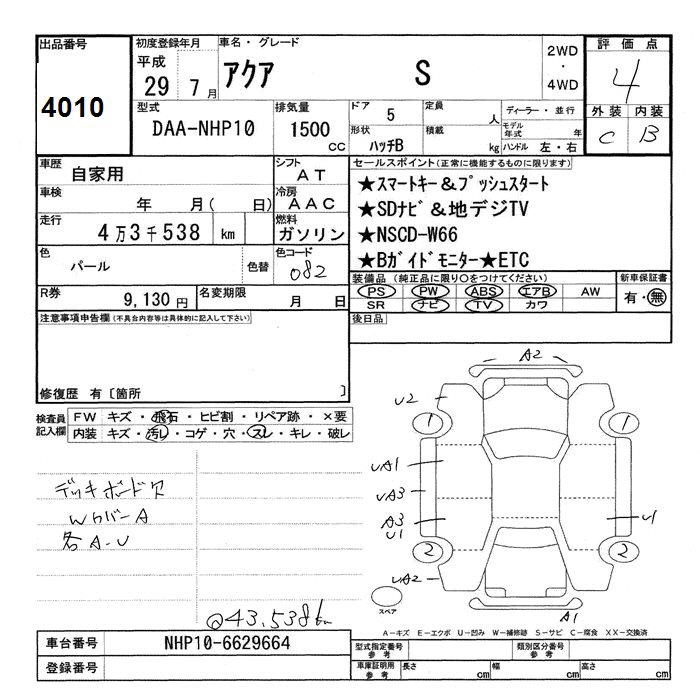 出品番号
4010
初度登録年月
平成
29 7 月
車名・グレード
アクア S
2WD
・
4WD
評価点
4
外装 内装
C B
型式
DAA-NHP10
排気量
1500
CC
ドア 5
定員 人
ディーラー・並行
モデル年式 年
形状 ハッチB
積載 kg
ハンドル 左・右
車歴 自家用
シフト AT
車検 年 月( 日)
冷房 AAC
走行 4万3千538 km
燃料 ガソリン
色 パール 色替
色コード 082
R券 9,130 円
名変期限 月 日
セールスポイント(正常に機能するものに限ります)
★スマートキー&プッシュスタート
★SDナビ&地デジTV
★NSCD-W66
★Bガイドモニター★ETC
装備品 (純正品に限り○をつけてください)
PS PW ABS エアB AW
SR ナビ TV カワ
新車保証書
有・無
後日品
注意事項申告欄(不具合内容等は具体的に記入して下さい)
修復歴 有〔箇所 〕
検査員記入欄
FW キズ・飛石・ヒビ割・リペア跡・×要
内装 キズ・汚レ・コゲ・穴・スレ・キレ・破レ
デッキボード欠
WカバーA
各A-U
@43,538km
A2
U2
1 1
UA1
UA3
A3
U1
U1
2 2
UA2
スペア
A1
A-キズ E-エクボ U-凹み W-補修跡 S-サビ C-腐食 XX-交換済
車台番号 NHP10-6629664
登録番号
型式指定番号 参考
類別区分番号 参考
車庫証明用 参考
長さ cm 幅 cm 高さ cm